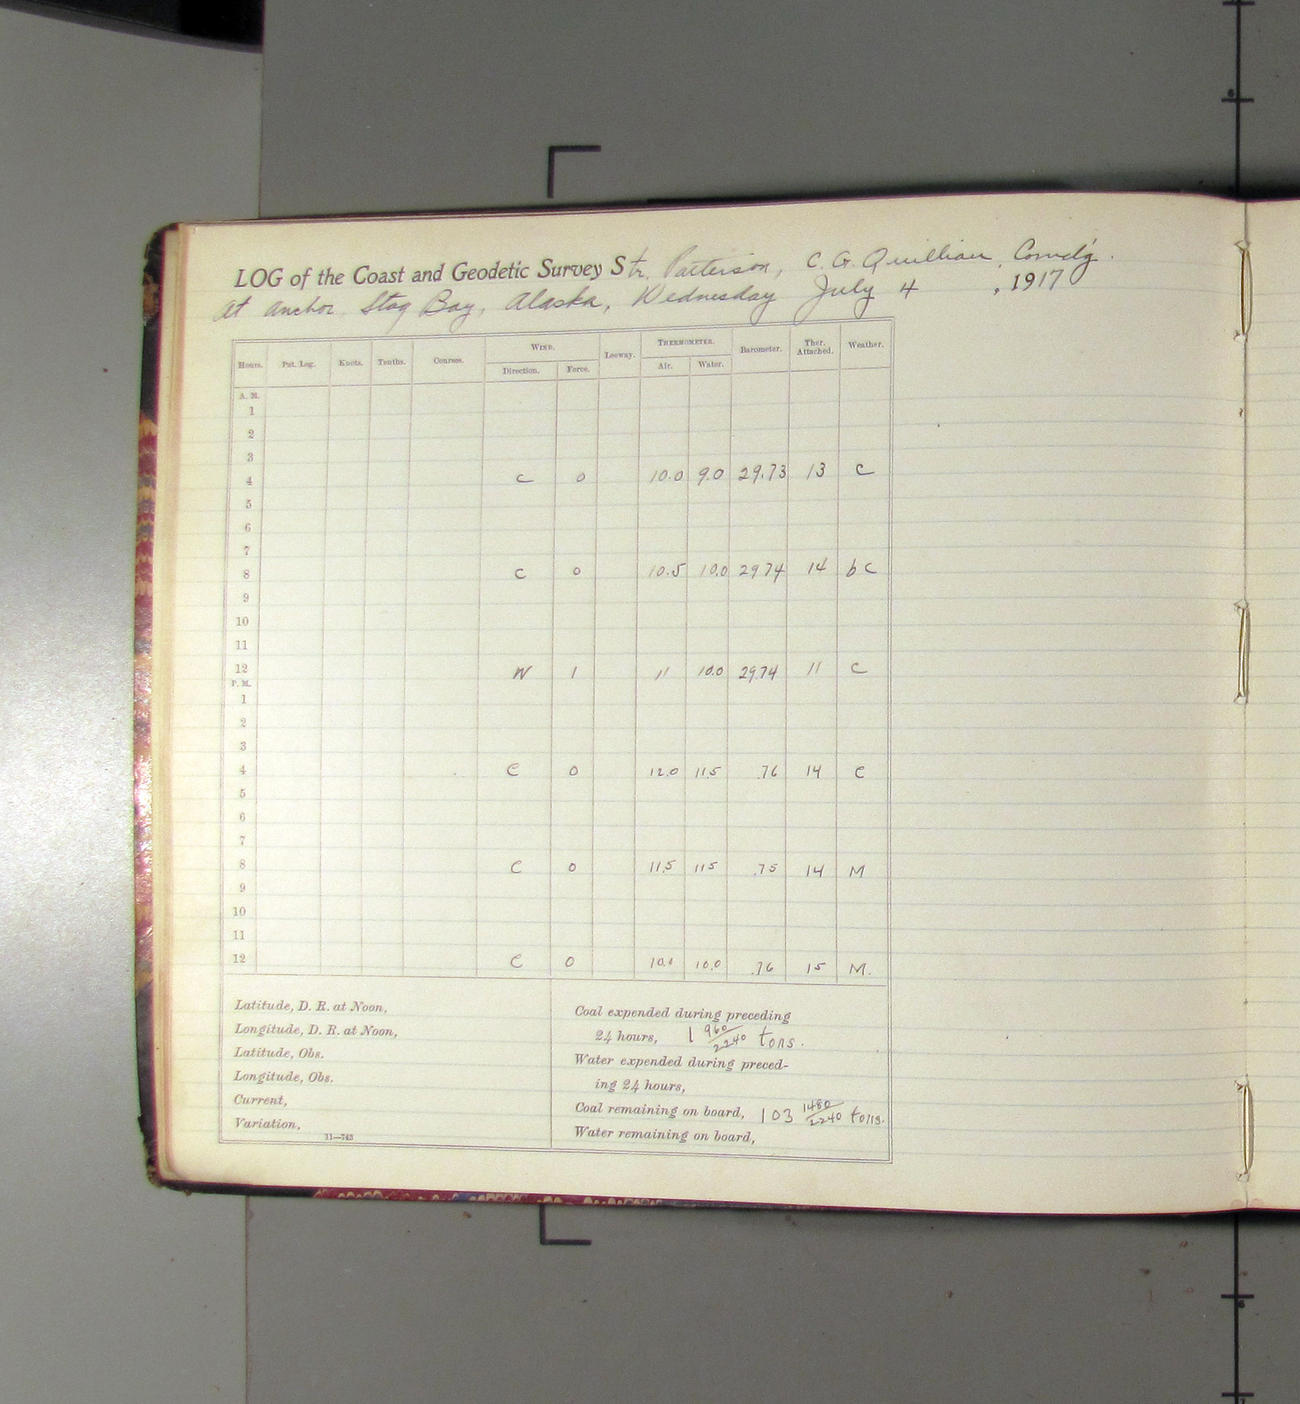 LOG of the Coast and Geodetic Survey Str. Patterson, C. G. Quillian, Comdg.
At anchor Stag Bay, Alaska, Wednesday July 4, 1917
Hours. Pat. Log. Knots. Tenths. Courses. WIND. Leeway. THERMOMETER. Barometer. Ther. Attached. Weather.
Direction. Force. Air. Water.
A. M.
1
2
3
4 C 0 10.0 9.0 29.73 13 C
5
6
7
8 C 0 10.5 10.0 29.74 14 b c
9
10
11
12 W 1 11 10.0 29.74 11 C
P. M.
1
2
3
4 C 0 12.0 11.5 .76 14 C
5
6
7
8 C 0 11.5 11.5 .75 14 M
9
10
11
12 C 0 10.0 10.0 .76 15 M.
Latitude, D. R. at Noon,
Longitude, D. R. at Noon,
Latitude, Obs.
Longitude, Obs.
Current,
Variation,
11—743
Coal expended during preceding
24 hours, 1 960/2240 tons.
Water expended during preced-
ing 24 hours,
Coal remaining on board, 103 1480/2240 tons.
Water remaining on board,